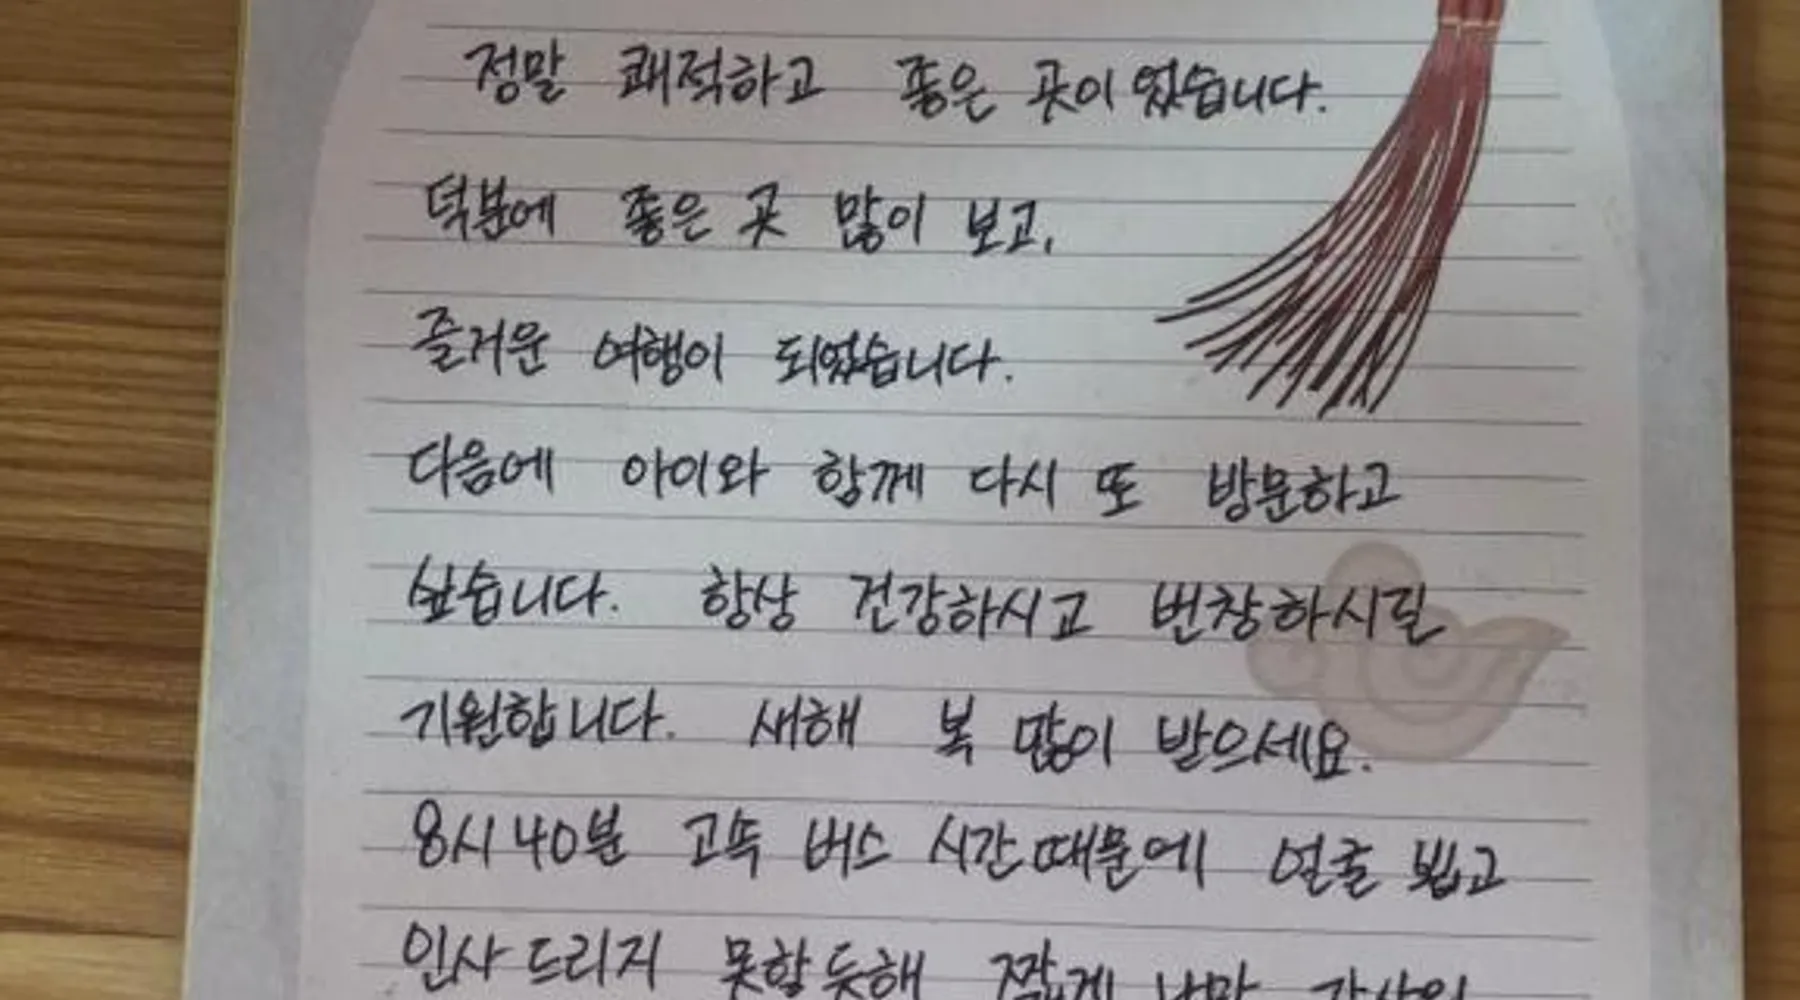 정말 쾌적하고 좋은 곳이었습니다.
덕분에 좋은 곳 많이 보고,
즐거운 여행이 되었습니다.
다음에 아이와 함께 다시 또 방문하고
싶습니다. 항상 건강하시고 번창하시길
기원합니다. 새해 복 많이 받으세요.
8시 40분 고속 버스 시간때문에 얼굴 뵙고
인사드리지 못할듯해 짧게 나마 감사의